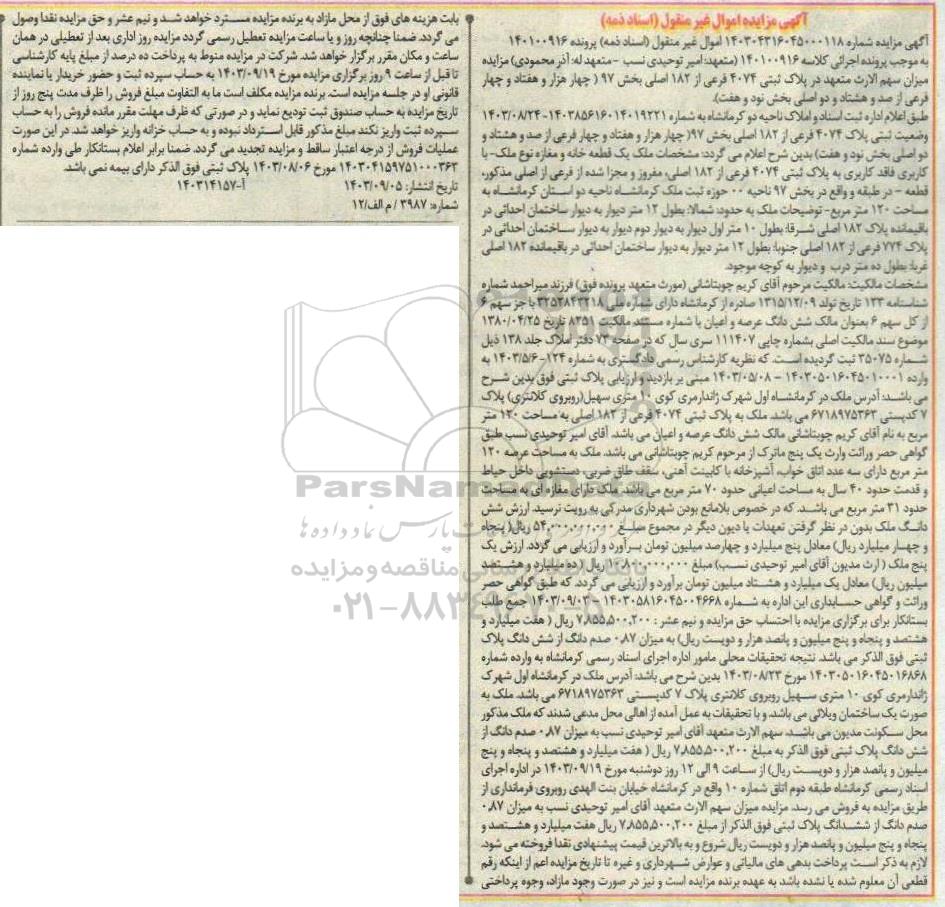 آگهی مزایده اموال غیر منقول (اسناد ذمه)
آگهی مزایده شماره ۱۴۰۳۰۴۳۱۶۰۴۵۰۰۰۱۱۸ اموال غیر منقول (اسناد ذمه) پرونده ۱۴۰۱۰۰۹۱۶
به موجب پرونده اجرائی کلاسه ۱۴۰۱۰۰۹۱۶ (متعهد: امیر توحیدی نسب - متعهد له: آذر محمودی) مزایده
میزان سهم الارث متعهد در پلاک ثبتی ۴۰۷۴ فرعی از ۱۸۲ اصلی بخش ۹۷ ( چهار هزار و هفتاد و چهار
فرعی از صد و هشتاد و دو اصلی بخش نود و هفت).
طبق اعلام اداره ثبت اسناد و املاک ناحیه دو کرمانشاه به شماره ۱۴۰۳۸۵۶۱۶۰۱۴۰۱۹۲۲۱ - ۱۴۰۳/۰۸/۲۴
وضعیت ثبتی پلاک ۴۰۷۴ فرعی از ۱۸۲ اصلی بخش ۹۷( چهار هزار و هفتاد و چهار فرعی از صد و هشتاد و
دو اصلی بخش نود و هفت) بدین شرح اعلام می گردد: مشخصات ملک یک قطعه خانه و مغازه نوع ملک- با
کاربری فاقد کاربری به پلاک ثبتی ۴۰۷۴ فرعی از ۱۸۲ اصلی، مفروز و مجزا شده از فرعی از اصلی مذکور،
قطعه - در طبقه و واقع در بخش ۹۷ ناحیه ۰۰ حوزه ثبت ملک کرمانشاه ناحیه دو استان کرمانشاه به
مساحت ۱۲۰ متر مربع- توضیحات ملک به حدود: شمالا: بطول ۱۲ متر دیوار به دیوار ساختمان احداثی در
باقیمانده پلاک ۱۸۲ اصلی شرقا: بطول ۱۰ متر اول دیوار به دیوار دوم دیوار به دیوار ساختمان احداثی در
پلاک ۷۷۴ فرعی از ۱۸۲ اصلی جنوبا: بطول ۱۲ متر دیوار به دیوار ساختمان احداثی در باقیمانده ۱۸۲ اصلی
غربا: بطول ده متر درب و دیوار به کوچه موجود.
مشخصات مالکیت: مالکیت مرحوم آقای کریم چوبتاشانی (مورث متعهد پرونده فوق) فرزند میراحمد شماره
شناسنامه ۱۳۳ تاریخ تولد ۱۳۱۵/۱۲/۰۹ صادره از کرمانشاه دارای شماره ملی ۳۲۵۲۸۴۳۲۱۸ با جز سهم ۶
از کل سهم ۶ بعنوان مالک شش دانگ عرصه و اعیان با شماره مستند مالکیت ۸۲۵۱ تاریخ ۱۳۸۰/۰۴/۲۵
موضوع سند مالکیت اصلی بشماره چاپی ۱۱۱۴۰۷ سری سال که در صفحه ۷۳ دفتر املاک جلد ۱۳۸ ذیل
شماره ۳۵۰۷۵ ثبت گردیده است. که نظریه کارشناس رسمی دادگستری به شماره ۱۲۴- ۱۴۰۳/۵/۶ به
وارده ۱۴۰۳۰۵۰۱۶۰۴۵۰۱۰۰۰۱ - ۱۴۰۳/۰۵/۰۸ مبنی بر بازدید و ارزیابی پلاک ثبتی فوق بدین شرح
می باشد: آدرس ملک در کرمانشاه اول شهرک ژاندارمری کوی ۱۰ متری سهیل(روبروی کلانتری) پلاک
۷ کدپستی ۶۷۱۸۹۷۵۳۶۳ می باشد. ملک به پلاک ثبتی ۴۰۷۴ فرعی از ۱۸۲ اصلی به مساحت ۱۲۰ متر
مربع به نام آقای کریم چوبتاشانی مالک شش دانگ عرصه و اعیان می باشد. آقای امیر توحیدی نسب طبق
گواهی حصر وراثت وارث یک پنج ماترک از مرحوم کریم چوبتاشانی می باشد. ملک به مساحت عرصه ۱۲۰
متر مربع دارای سه عدد اتاق خواب، آشپزخانه با کابینت آهنی، سقف طاق ضربی، دستشویی داخل حیاط
و قدمت حدود ۴۰ سال به مساحت اعیانی حدود ۷۰ متر مربع می باشد. ملک دارای مغازه ای به مساحت
حدود ۳۱ متر مربع می باشد. که در خصوص بلامانع بودن شهرداری مدرکی به رویت نرسید. ارزش شش
دانگ ملک بدون در نظر گرفتن تعهدات یا دیون دیگر در مجموع مبلغ ۵۴,۰۰۰,۰۰۰,۰۰۰ ریال( پنجاه
و چهار میلیارد ریال) معادل پنج میلیارد و چهارصد میلیون تومان برآورد و ارزیابی می گردد. ارزش یک
پنج ملک ( ارث مدیون آقای امیر توحیدی نسب) مبلغ ۱۰,۸۰۰,۰۰۰,۰۰۰ ریال( ده میلیارد و هشتصد
میلیون ریال) معادل یک میلیارد و هشتاد میلیون تومان برآورد و ارزیابی می گردد. که طبق گواهی حصر
وراثت و گواهی حسابداری این اداره به شماره ۱۴۰۳۰۵۸۱۶۰۴۵۰۰۴۶۶۸ - ۱۴۰۳/۰۹/۰۳ جمع طلب
بستانکار برای برگزاری مزایده با احتساب حق مزایده و نیم عشر : ۷,۸۵۵,۵۰۰,۲۰۰ ریال ( هفت میلیارد و
هشتصد و پنجاه و پنج میلیون و پانصد هزار و دویست ریال) به میزان ۰.۸۷ صدم دانگ از شش دانگ پلاک
ثبتی فوق الذکر می باشد. نتیجه تحقیقات محلی مامور اداره اجرای اسناد رسمی کرمانشاه به وارده شماره
۱۴۰۳۰۵۰۱۶۰۴۵۰۱۶۸۶۸ مورخ ۱۴۰۳/۰۸/۲۳ بدین شرح می باشد: آدرس ملک در کرمانشاه اول شهرک
ژاندارمری کوی ۱۰ متری سهیل روبروی کلانتری پلاک ۷ کدپستی ۶۷۱۸۹۷۵۳۶۳ می باشد. ملک به
صورت یک ساختمان ویلائی می باشد. و با تحقیقات به عمل آمده از اهالی محل مدعی شدند که ملک مذکور
محل سکونت مدیون می باشد. سهم الارث متعهد آقای امیر توحیدی نسب به میزان ۰.۸۷ صدم دانگ از
شش دانگ پلاک ثبتی فوق الذکر به مبلغ ۷,۸۵۵,۵۰۰,۲۰۰ ریال ( هفت میلیارد و هشتصد و پنجاه و پنج
میلیون و پانصد هزار و دویست ریال) از ساعت ۹ الی ۱۲ روز دوشنبه مورخ ۱۴۰۳/۰۹/۱۹ در اداره اجرای
اسناد رسمی کرمانشاه طبقه دوم اتاق شماره ۱۰ واقع در کرمانشاه خیابان بنت الهدی روبروی فرمانداری از
طریق مزایده به فروش می رسد. مزایده میزان سهم الارث متعهد آقای امیر توحیدی نسب به میزان ۰.۸۷
صدم دانگ از ششدانگ پلاک ثبتی فوق الذکر از مبلغ ۷,۸۵۵,۵۰۰,۲۰۰ ریال هفت میلیارد و هشتصد و
پنجاه و پنج میلیون و پانصد هزار و دویست ریال شروع و به بالاترین قیمت پیشنهادی نقدا فروخته می شود.
لازم به ذکر است پرداخت بدهی های مالیاتی و عوارض شهرداری و غیره تا تاریخ مزایده اعم از اینکه رقم
قطعی آن معلوم شده یا نشده باشد. به عهده برنده مزایده است و نیز در صورت وجود مازاد، وجوه پرداختی
بابت هزینه های فوق از محل مازاد به برنده مزایده مسترد خواهد شد و نیم عشر و حق مزایده نقدا وصول
می گردد. ضمنا چنانچه روز و یا ساعت مزایده تعطیل رسمی گردد مزایده روز اداری بعد از تعطیلی در همان
ساعت و مکان مقرر برگزار خواهد شد. شرکت در مزایده منوط به پرداخت ده درصد از مبلغ پایه کارشناسی
تا قبل از ساعت ۹ روز برگزاری مزایده مورخ ۱۴۰۳/۰۹/۱۹ به حساب سپرده ثبت و حضور خریدار یا نماینده
قانونی او در جلسه مزایده است. برنده مزایده مکلف است ما به التفاوت مبلغ فروش را ظرف مدت پنج روز از
تاریخ مزایده به حساب صندوق ثبت تودیع نماید و در صورتی که ظرف مهلت مقرر مانده فروش را به حساب
سپرده ثبت واریز نکند مبلغ مذکور قابل استرداد نبوده و به حساب خزانه واریز خواهد شد. در این صورت
عملیات فروش از درجه اعتبار ساقط و مزایده تجدید می گردد. ضمنا برابر اعلام بستانکار طی وارده شماره
۱۴۰۳۰۴۱۵۹۷۵۱۰۰۰۳۶۲ مورخ ۱۴۰۳/۰۸/۰۶ پلاک ثبتی فوق الذکر دارای بیمه نمی باشد.
تاریخ انتشار: ۱۴۰۳/۰۹/۰۵ آ-۱۴۰۳۱۴۱۵۷
شماره: ۳۹۸۷ / م الف/۱۲
ParsNamadData
پارس نماد داده ها
مناقصه و مزایده
۰۲۱-۸۸۳۴۹۶۷۰-۵